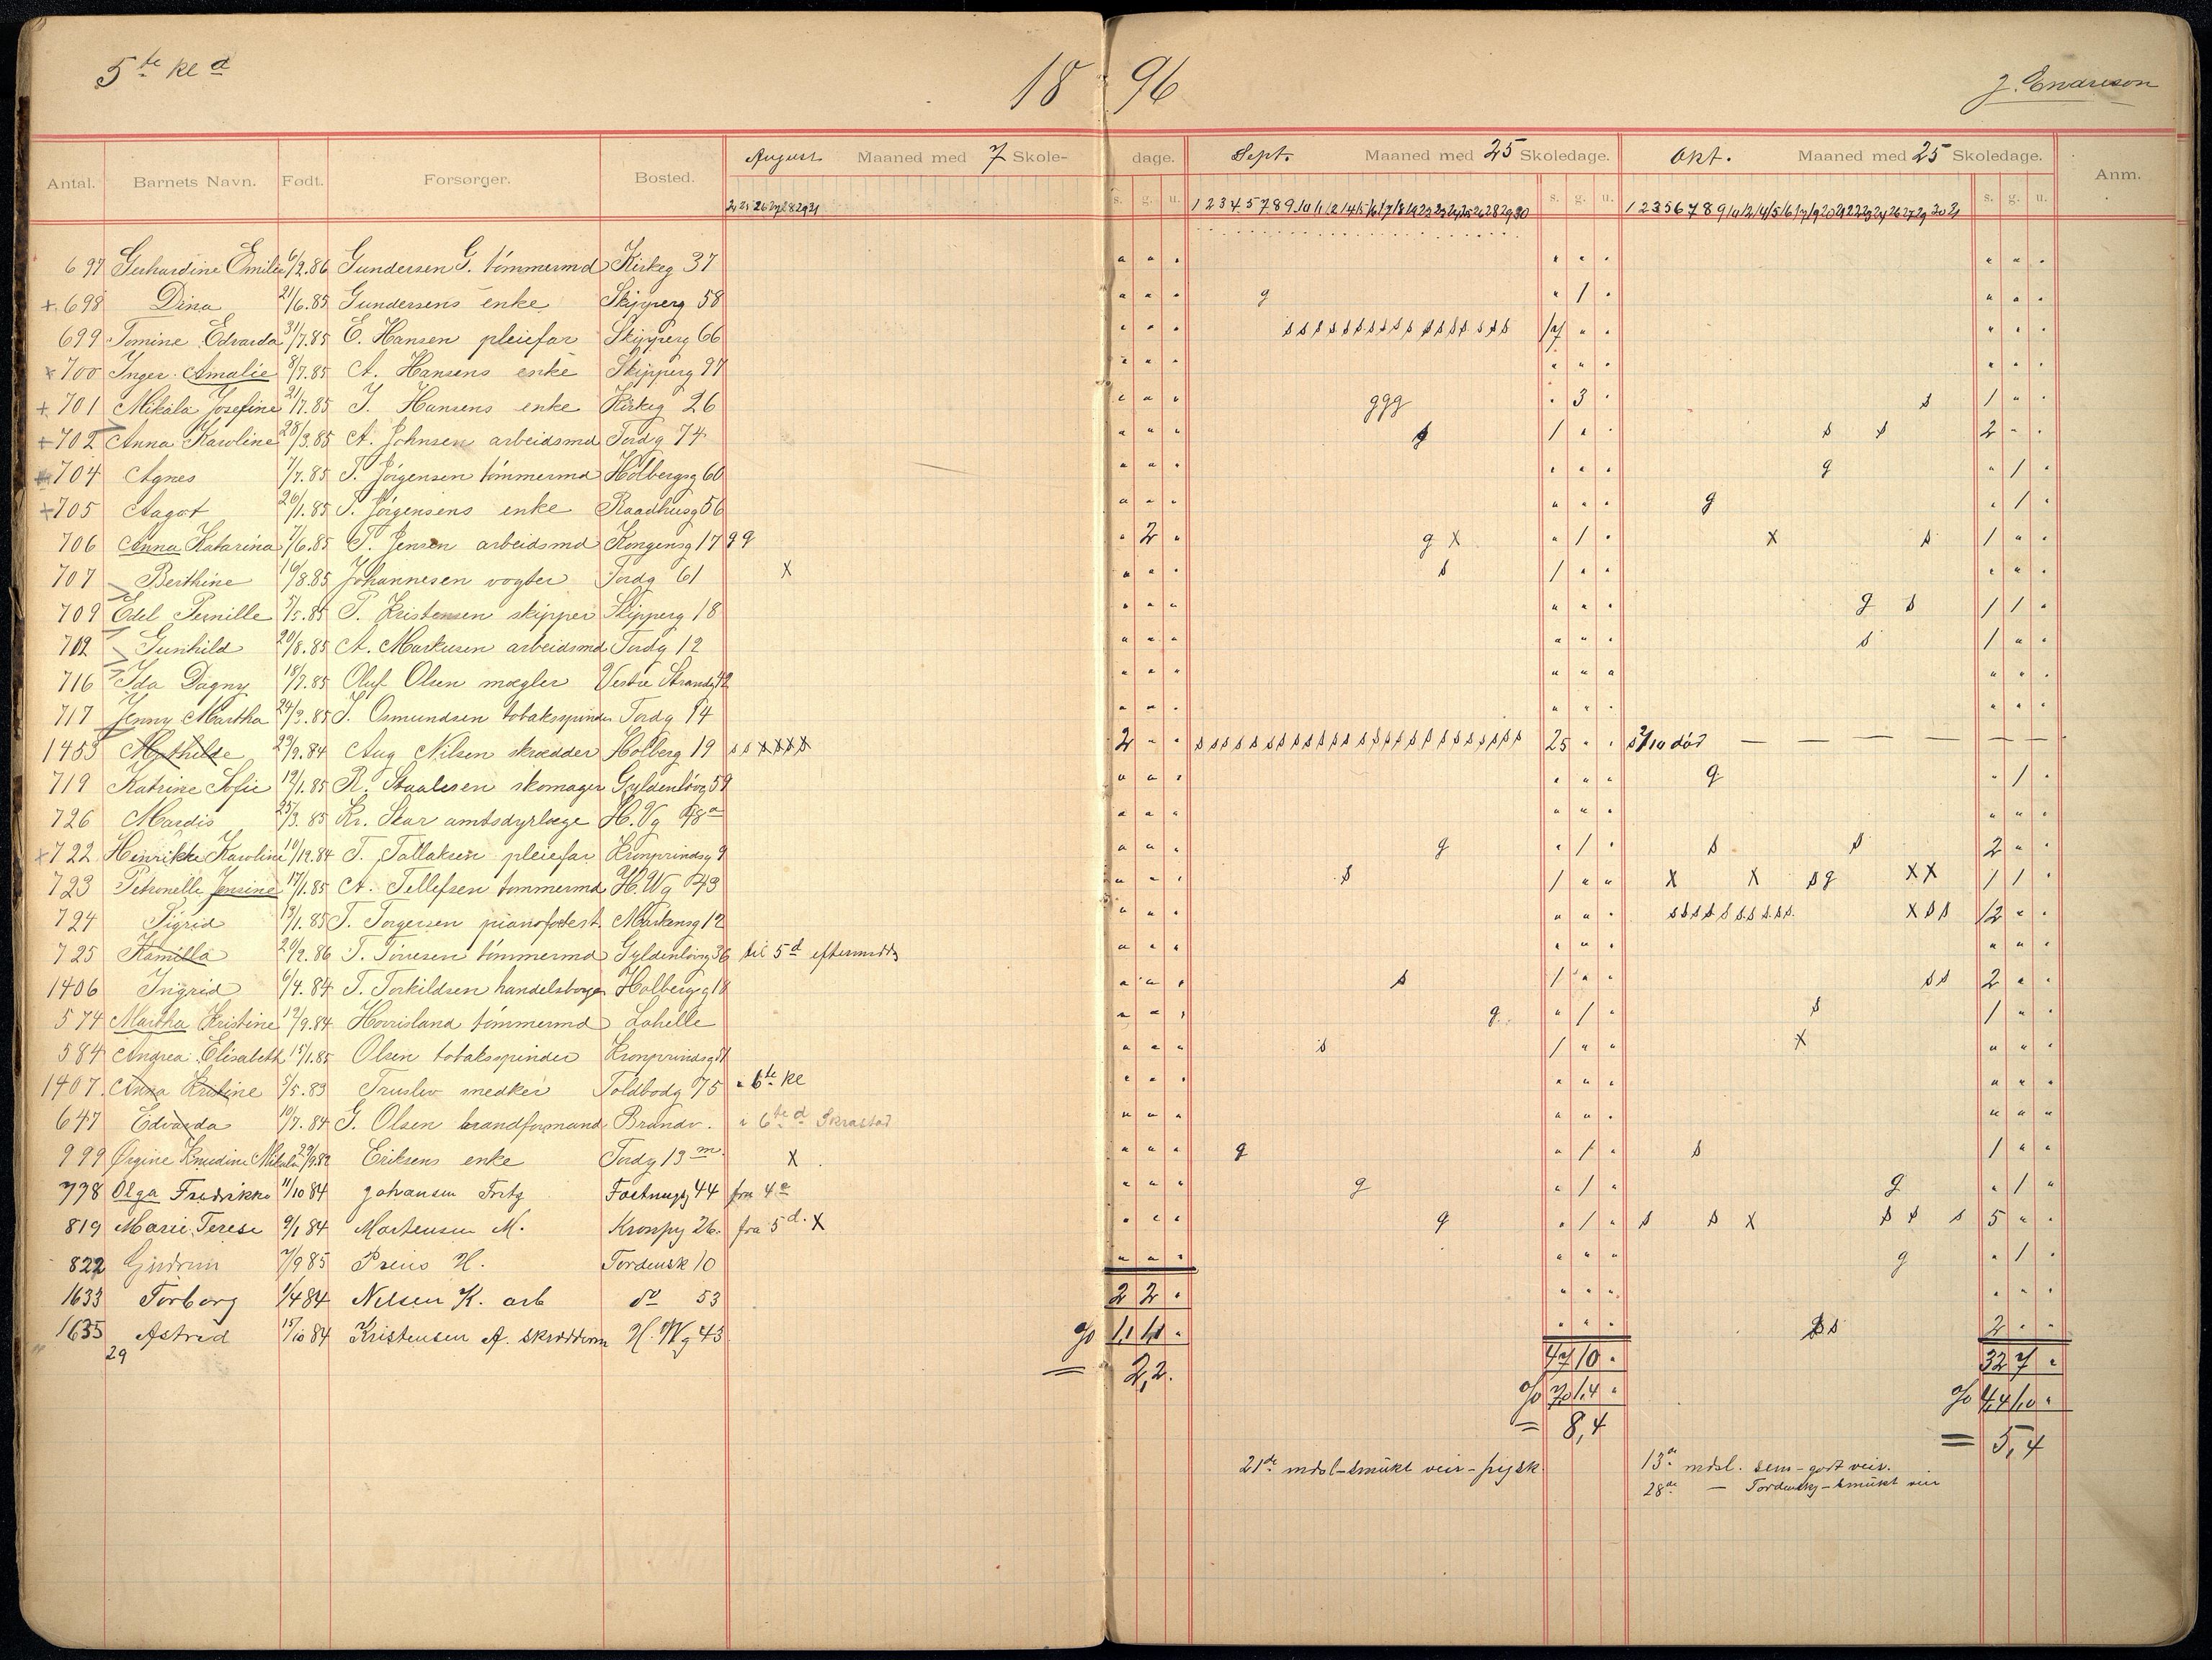 5te kl d
18 96
J. Endreson
August Maaned med 7 Skole-dage. Sept. Maaned med 25 Skoledage. Okt. Maaned med 25 Skoledage.
Antal. Barnets Navn. Født. Forsørger. Bosted. s. g. u. s. g. u. s. g. u. Anm.
697 Gerhardine Emilie 6/2.86 Gundersen G. tömmermd Kirkeg 37
+ 698 Dina 21/6.85 Gundersens enke Skipperg 58 g 1
699 Tomine Edvarda 31/7.85 E. Hansen pleiefar Skipperg 66 s s s s s s s s s s s s s s s s s 17
x 700 Inger Amalie 8/7.85 A. Hansens enke Skipperg 97
+ 701 Mikala Josefine 21/7.85 J. Hansens enke Kirkeg 26 g g g 3 s 1
+ 702 Anna Karoline 28/3.85 A. Johnsen arbeidsmd Tordg 74 s 1 s s 2
704 Agnes 7/7.85 T. Jörgensen tömmermd Holbergsg 60 g 1
+ 705 Aagot 26/1.85 T. Jörgensens enke Raadhusg 56 g 1
706 Anna Katarina 7/6.85 T. Jensen arbeidsmd Kongensg 17 g g 2 g X 1 X s 1
707 Berthine 16/8.85 Johannesen vogter Tordg 61 X s 1
709 Edel Pernille 5/5.85 P. Kristensen skipper Skipperg 18 g s 1 1
712 Gunhild 20/8.85 A. Markusen arbeidsmd Tordg 12 s 1
716 Ida Dagny 18/7.85 Oluf Olsen mægler Vestre Strandg 42
717 Jenny Martha 24/3.85 J. Osmundsen tobakspinder Tordg 14
1453 Mathilde 29/9.84 Aug Nilsen skrædder Holberg 19 s s X X X X X 2 s s s s s s s s s s s s s s s s s s s s s s s s s 25 2/10 död — — — — — — —
719 Katrine Sofie 12/1.85 R. Staalesen skomager Gyldenlövg 59 g 1
726 Mardis 25/3.85 Kr. Skar amtsdyrlæge H.Vg 48a
x 722 Henrikke Karoline 10/12.84 T. Tallaksen pleiefar Kronprindsg 9 g 1 s s 2
723 Petronelle Jensine 17/1.85 A. Tellefsen tømmermd H.Wg 43 s 1 X X s g X X 1 1
724 Sigrid 13/1.85 T. Torgersen pianofortest. Markensg 12 s s s s s s s s s s X s s 12
725 Kamilla 20/2.86 T. Törresen tömmermd Gyldenlövg 36 til 5d eftermidd
1406 Ingrid 6/4.84 T. Torkildsen handelsborger Holbergsg 18 s 1 s s 2
574 Martha Kristine 12/9.84 Hovrisland tömmermd Lahelle g 1 s 1
584 Andrea Elisabeth 15/1.85 Olsen tobakspinder Kronprindsg 51 s 1 X
1407 Anna Kristine 5/5.83 Truslew snedker Toldbodg 75 i 6te kl
647 Edvarda 10/7.84 G. Olsen brandformand Brandv. i 6te d Skrastad
999 Örgine Knudine Mikala Eriksens enke Tordg 13 m. X g 1 s 1
778 Olga Fredrikke 11/10 84 Johansen Fritz Fæstnugsg 44 fra 4a g 1 g 1
819 Marie Terese 9/1 84 Mortensen M. Kronpg 26. fra 5d. X g 1 s s X s s s 5
822 Gudrun 7/9 85 Preus H. Tordensk 10 g 1
1633 Torborg 1/4 84 Nilsen K. arb do 53 2 2
1635 Astrid 15/10 84 Kristensen A. skrædderm H.Wg 43 % 1,1 1,1 s s 2
29
= 2,2.
47 10
% 7,0 1,4
= 8,4
32 7
% 4,4 1,0
= 5,4
21de mdsl - smukt veir - frisk.
13de mdsl. sem - godt veir.
28de — Tordenskg - smukt veir